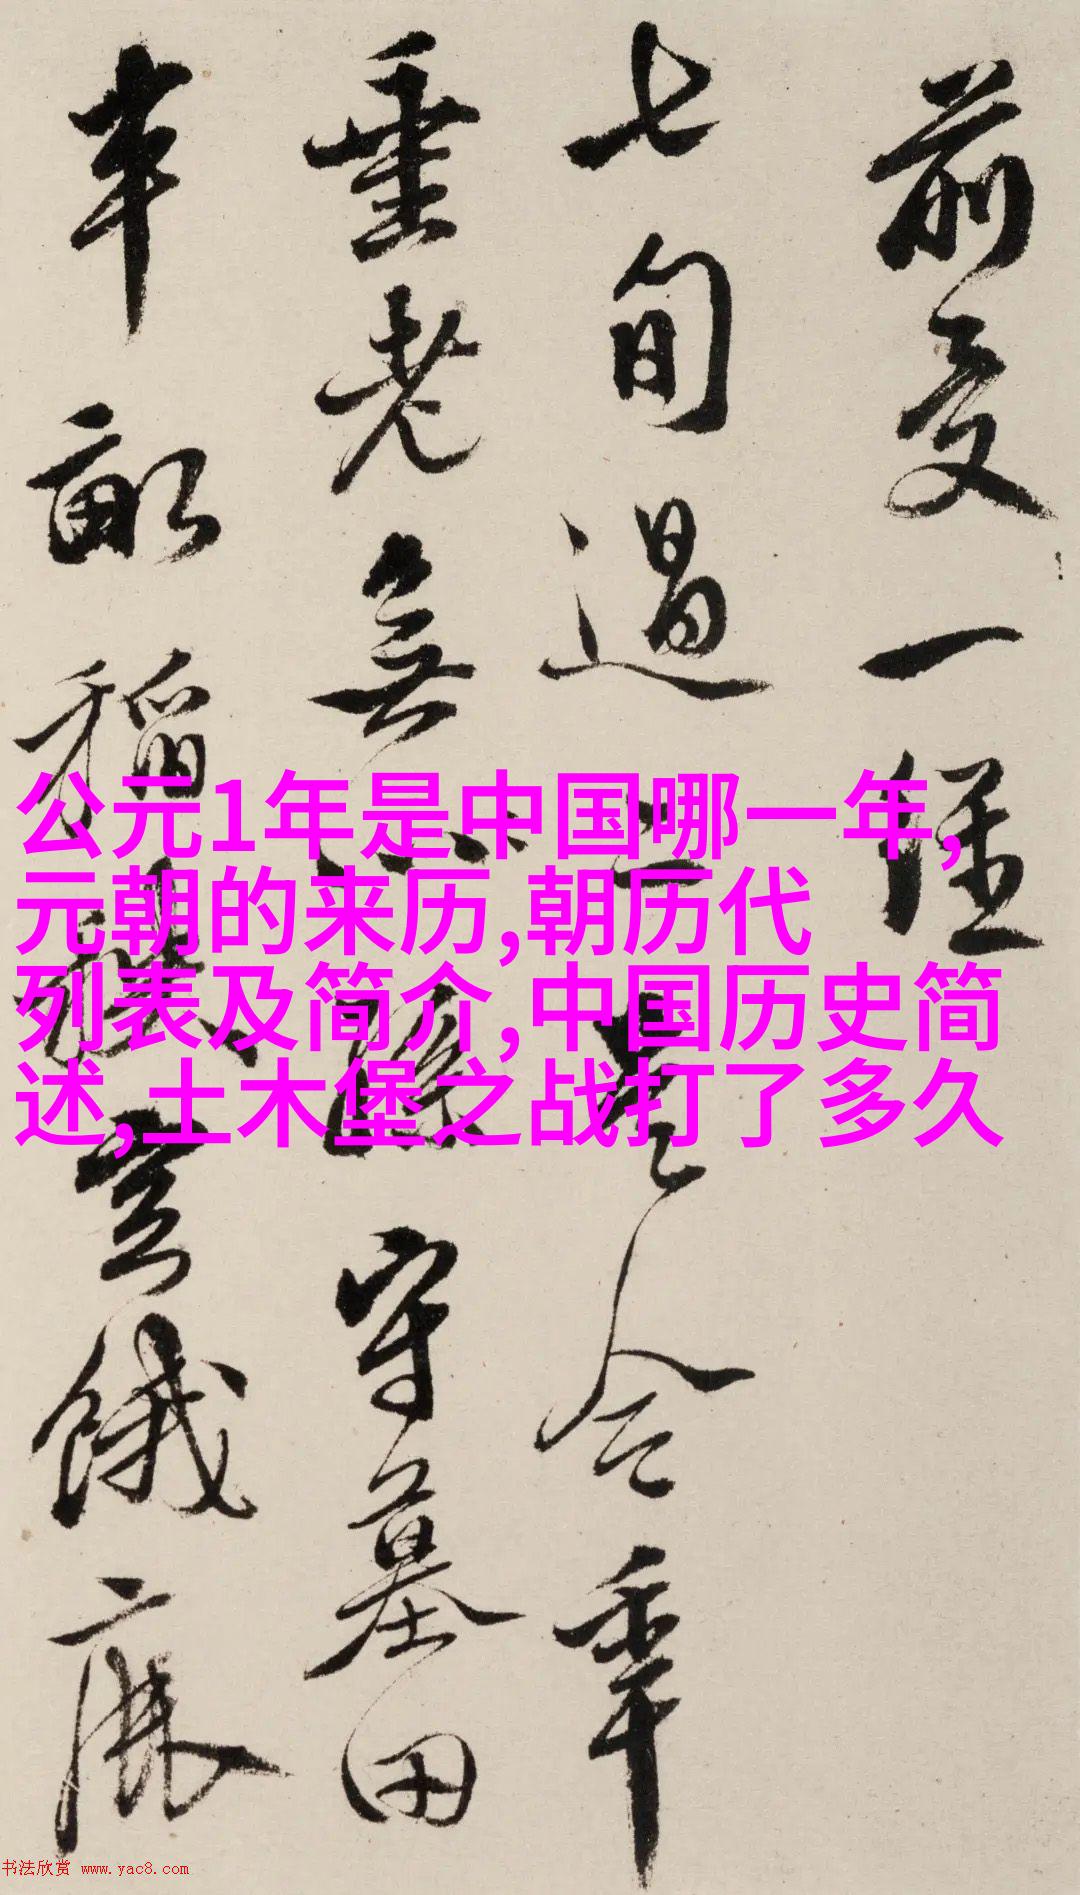 前受一
七旬過二是今年
垂老無守墓田
半畝稻
公元1年是中国哪一年,
元朝的来历,朝历代
列表及简介,中国历史简
述,土木堡之战打了多久
书法欣赏 www.yac8.com